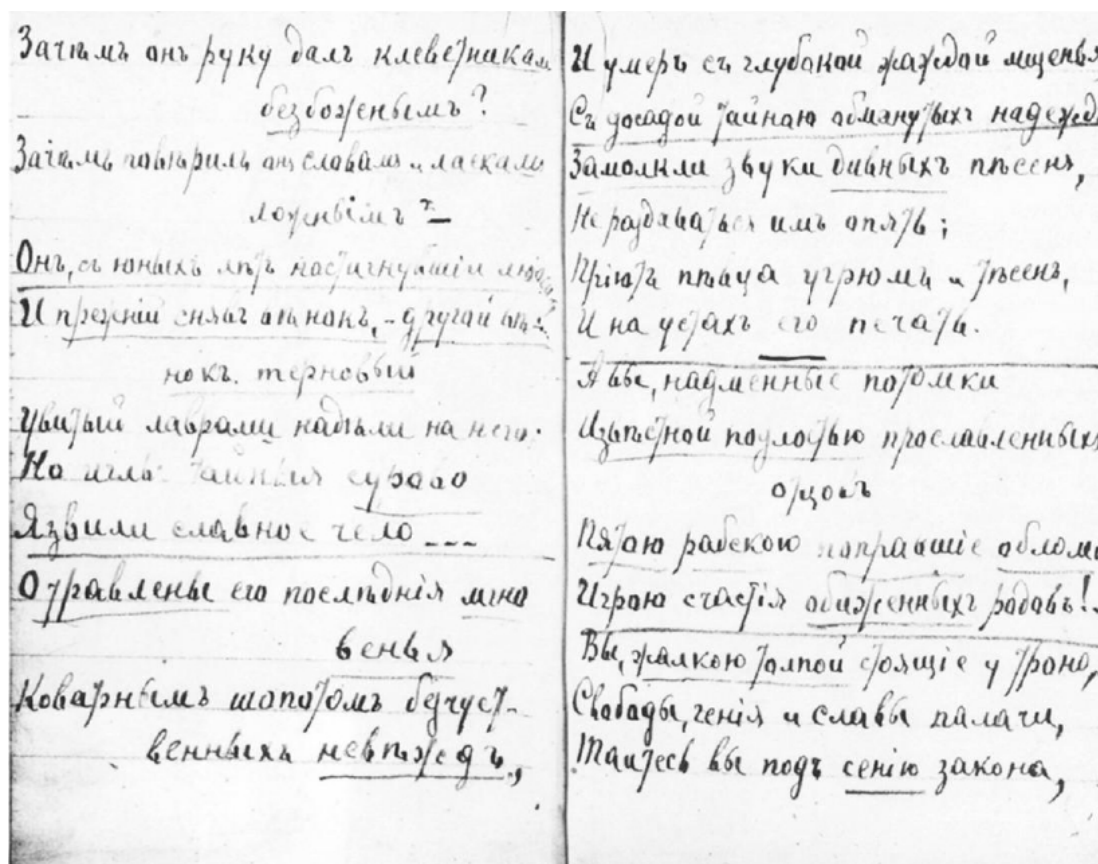 Зачѣмъ онъ руку далъ клеветникам
безбожнымъ?
Зачѣмъ повѣрилъ онъ словамъ и ласкамъ
ложнымъ?
Онъ, съ юныхъ лѣтъ постигнувшій людей
И прежній снявъ вѣнокъ, - другой вѣ-
нокъ терновый
Увитый лаврами надѣли на него:
Но иглы тайныя сурово
Язвили славное чело ---
Отравлены его послѣднія мгно
венья
Коварнымъ шопотомъ безчуст-
венныхъ невѣждъ,
И умеръ съ глубокой жаждой мщенья
Съ досадой тайною обманутыхъ надежд
Замолкли звуки дивныхъ пѣсенъ,
Не раздаваться имъ опять;
Пріютъ пѣвца угрюмъ и тѣсенъ,
И на устахъ его печать.
А вы, надменные потомки
Извѣстной подлостью прославленныхъ
отцовъ
Пятою рабскою поправшіе обломк
Игрою счастія обиженныхъ родовъ!
Вы, жалкою толпой стоящіе у трона,
Свободы, генія и славы палачи,
Таитесь вы подъ сенію закона,